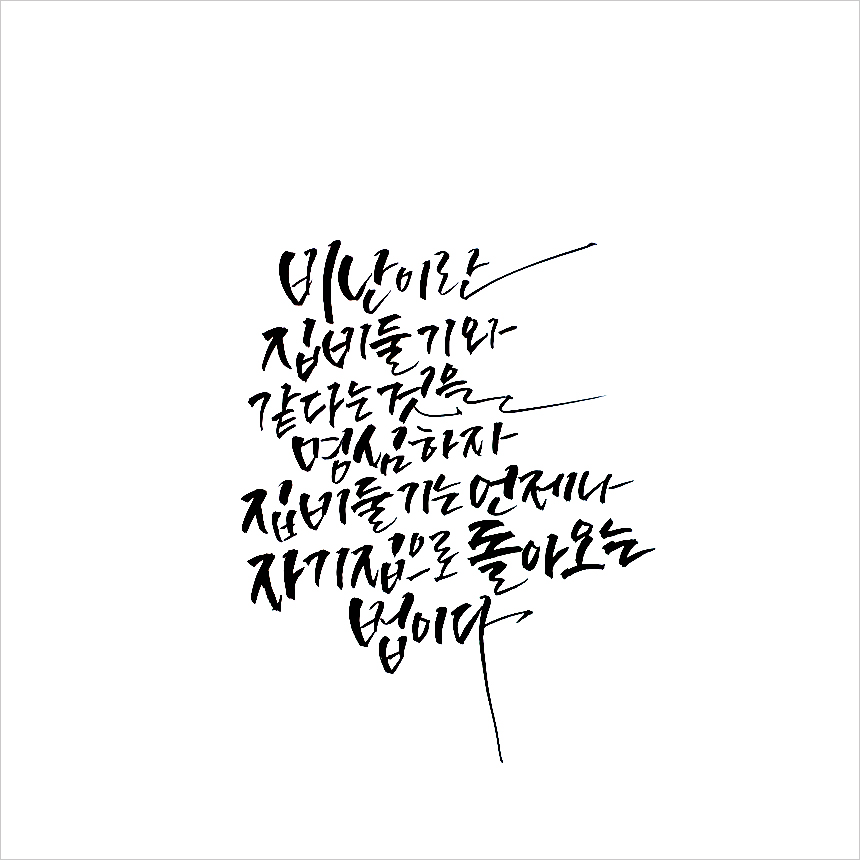 비난이란
집비둘기와
같다는것을
명심하자
집비둘기는언제나
자기집으로돌아오는
법이다